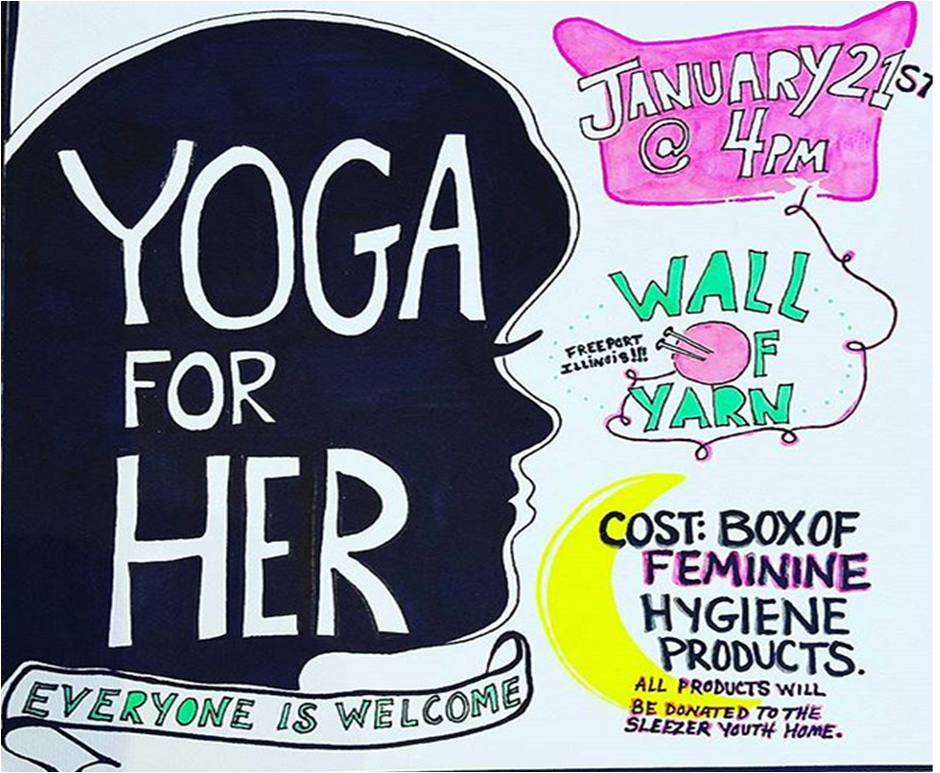 YOGA
FOR
HER
EVERYONE IS WELCOME
JANUARY 21ST
@ 4PM
WALL
OF
YARN
FREEPORT
ILLINOIS!!!
COST: BOX OF
FEMININE
HYGIENE
PRODUCTS.
ALL PRODUCTS WILL
BE DONATED TO THE
SLEEZER YOUTH HOME.